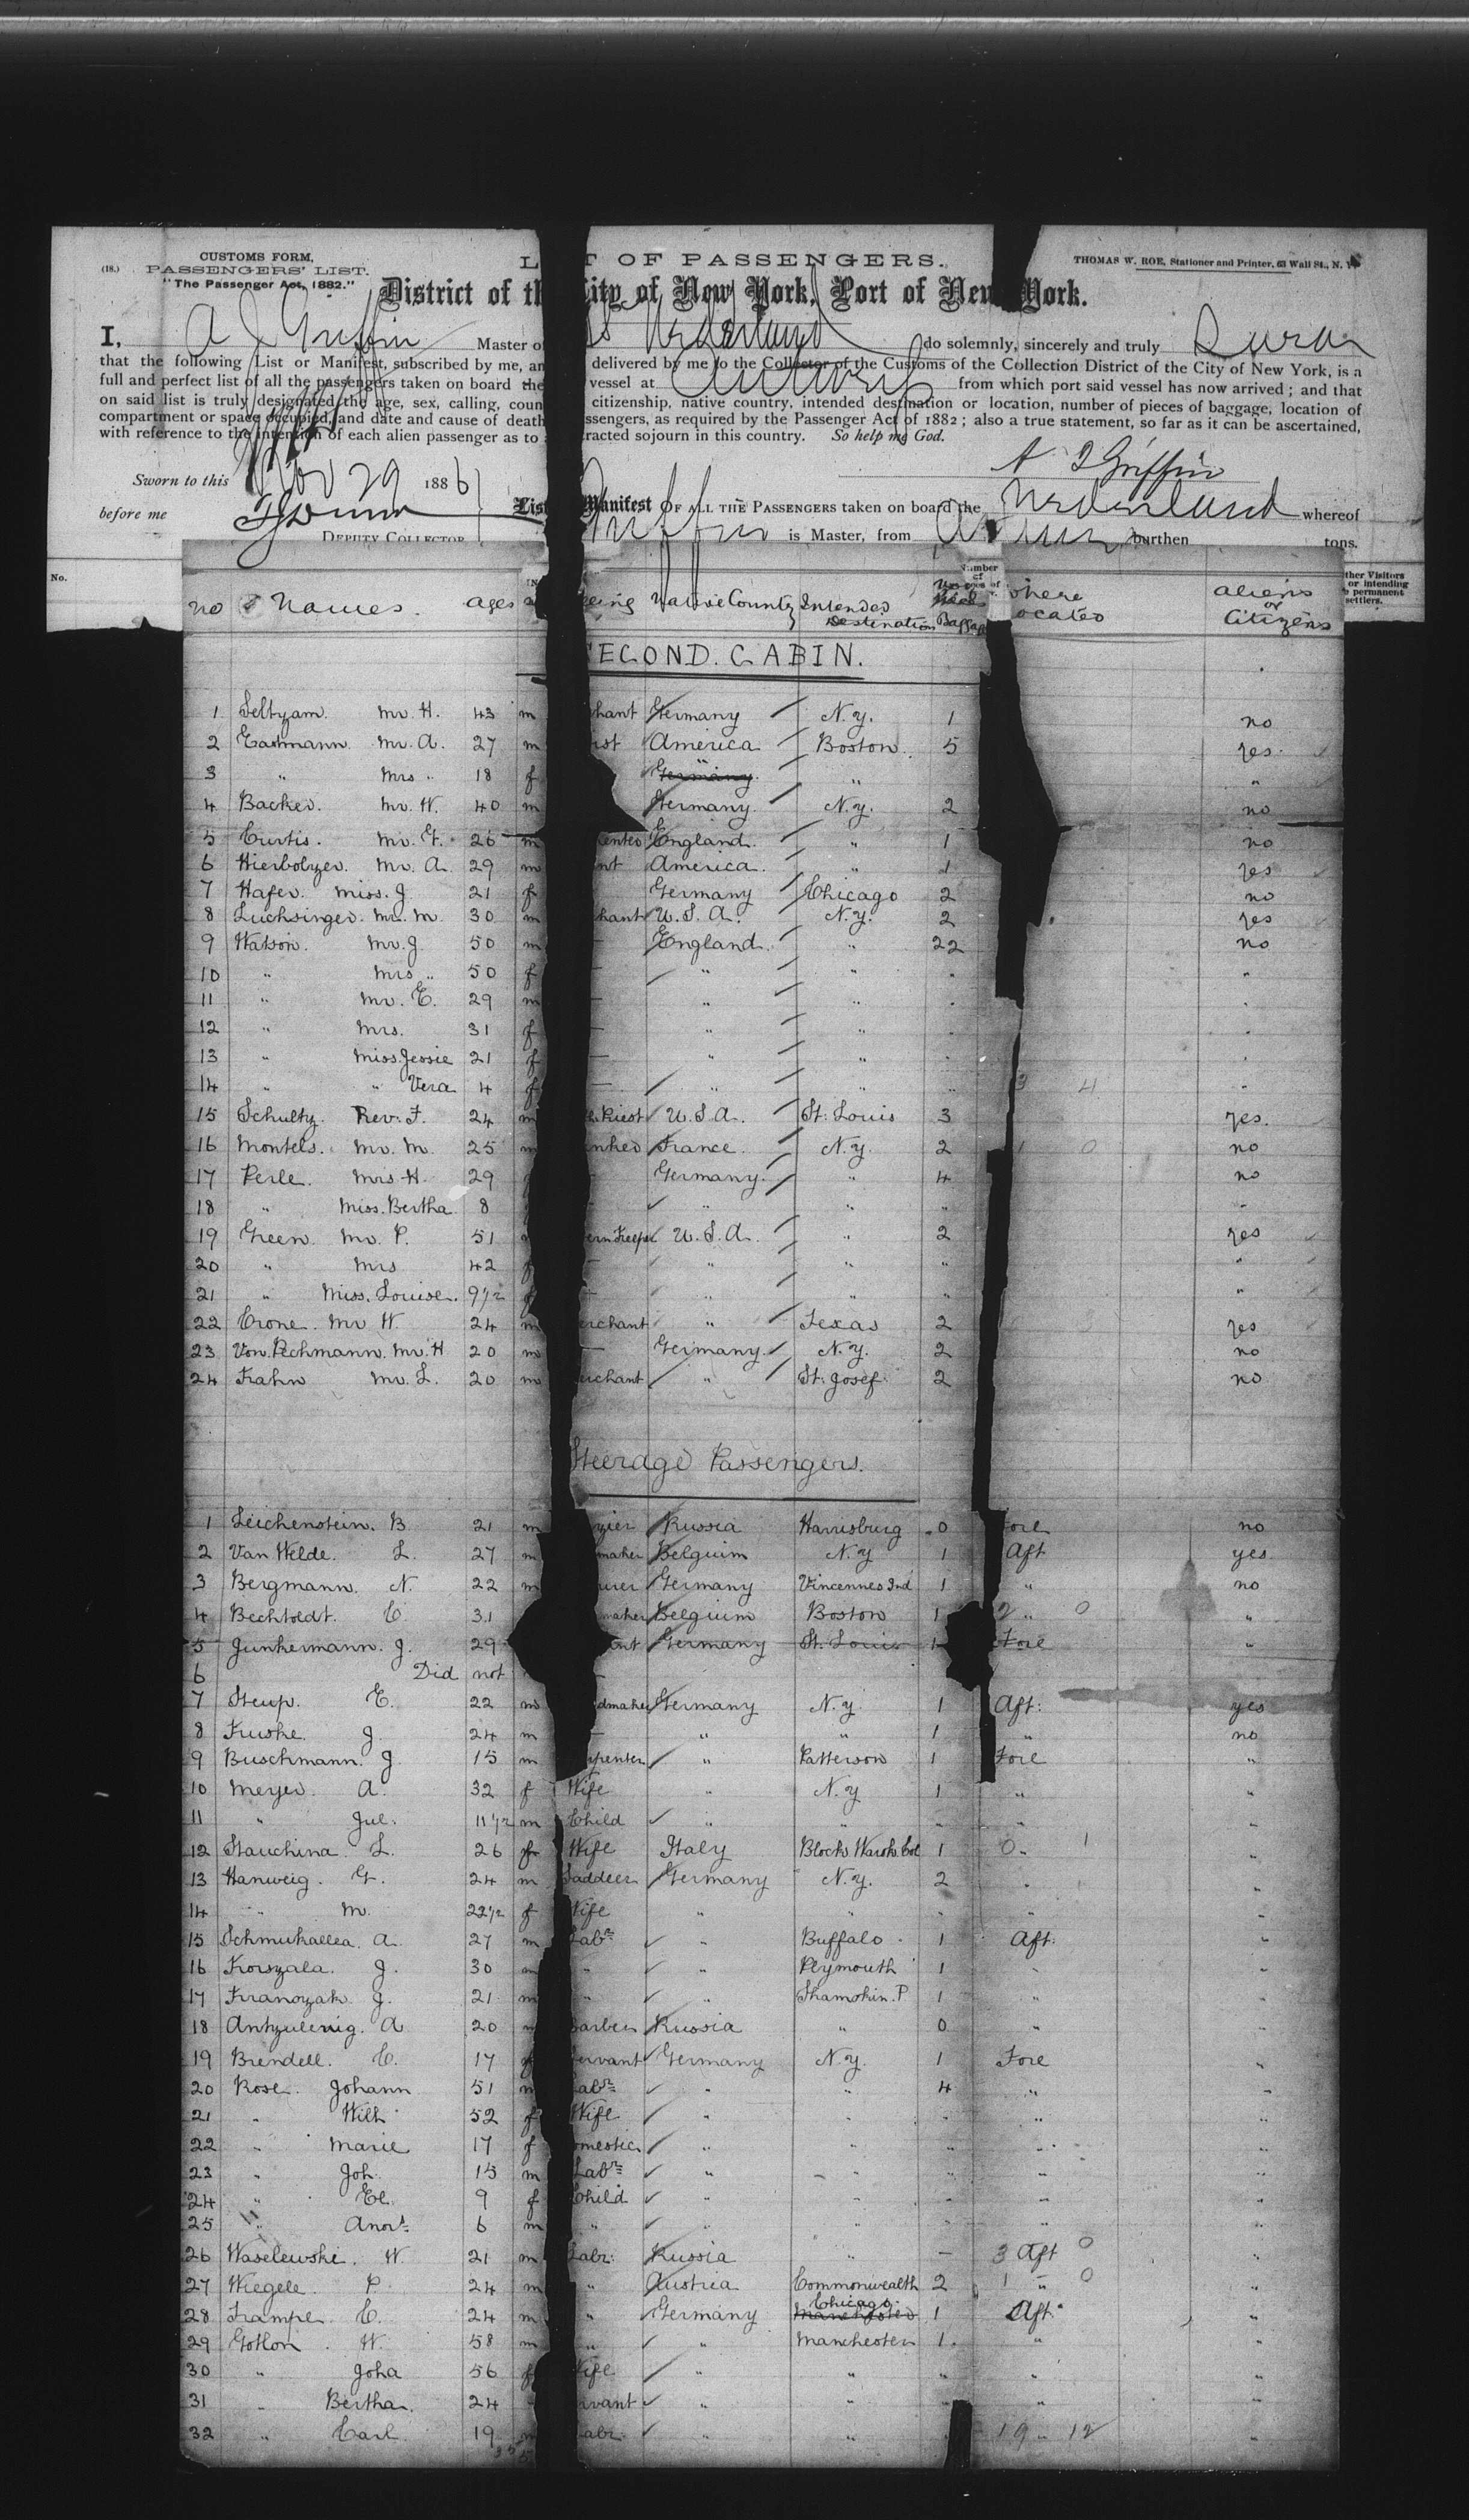 CUSTOMS FORM, LIST OF PASSENGERS. THOMAS W. ROE, Stationer and Printer, 63 Wall St., N. Y.
(18.) PASSENGERS' LIST.
"The Passenger Act, 1882." District of the City of New York, Port of New York.
I, A J Griffin Master of SS Nederland do solemnly, sincerely and truly Swear
that the following List or Manifest, subscribed by me, an delivered by me to the Collector of the Customs of the Collection District of the City of New York, is a
full and perfect list of all the passengers taken on board the vessel at Antwerp from which port said vessel has now arrived; and that
on said list is truly designated the age, sex, calling, coun citizenship, native country, intended destination or location, number of pieces of baggage, location of
compartment or space occupied, and date and cause of death ssengers, as required by the Passenger Act of 1882; also a true statement, so far as it can be ascertained,
with reference to the intention of each alien passenger as to tracted sojourn in this country. So help me God.
A J Griffin
Sworn to this Nov 29 1886
before me List Manifest OF ALL THE PASSENGERS taken on board the Nederland whereof
DEPUTY COLLECTOR Griffin is Master, from burthen tons.
No. Number of ther Visitors or intending permanent settlers.
no Names. ages ling Native County Intended Destination Baggage where ocated aliens or Citizens
SECOND. CABIN.
1 Seltzam. Mr. H. 43 m hant Germany N.Y. 1 no
2 Eastmann. Mr. A. 27 m ist America Boston. 5 yes
3 " Mrs " 18 f " Germany. " "
4 Backer. Mr. W. 40 m Germany. N.Y. 2 no
5 Curtis. Mr. G. 26 m enter England. " 1 no
6 Hierbolzer. Mr. A. 29 m nt America. " 1 yes
7 Hafer. Miss. J. 21 f Germany Chicago 2 no
8 Luchsinger. Mr. M. 30 m hant U.S.A. N.Y. 2 yes
9 Watson. Mr. J. 50 m — England. " 22 no
10 " Mrs " 50 f — " " " "
11 " Mr. E. 29 m — " " " "
12 " Mrs. 31 f — " " " "
13 " Miss Jessie 21 f — " " " "
14 " " Vera 4 f — " " " 3 4 "
15 Schultz. Rev. F. 24 m Priest U.S.A. St. Louis 3 yes.
16 Montels. Mr. M. 25 m France. N.Y. 2 1 0 no
17 Perle. Mrs H. 29 Germany. " 4 no
18 " Miss. Bertha 8 " " " "
19 Green. Mr. P. 51 ern Keeper U.S.A. " 2 yes
20 " Mrs 42 f — " " " "
21 " Miss. Louise. 9 1/2 f — " " " "
22 Crone. Mr W. 24 m erchant " Texas 2 yes
23 Von. Pechmann. Mr. H 20 m — Germany. N.Y. 2 no
24 Frahn Mr. L. 20 m erchant " St. Josef. 2 no
Steerage Passengers.
1 Leichenstein. B 21 m Russia Harrisburg 0 Fore no
2 Van Welde. L. 27 m maker Belguim N.Y 1 Aft yes
3 Bergmann. N. 22 m urer Germany Vincennes Ind 1 " no
4 Bechtoldt. C. 31 maker Belgium Boston 1 2 " 0 "
5 Junkermann. J. 29 nt Germany St. Louis 1 Fore "
6 Did not
7 Steup. E. 22 m dmaker Germany N.Y. 1 Aft: yes
8 Fuske. J. 24 m — " " 1 " no
9 Buschmann. J. 15 m rpenter " Patterson 1 Fore "
10 Meyer. A. 32 f Wife " N.Y 1 " "
11 " Jul. 11 1/2 m Child " " " " "
12 Stauchina. L. 26 f Wife Italy 1 0 " 1 "
13 Hanweig. G. 24 m Saddeer Germany N.Y. 2 " "
14 " M. 22 1/2 f Wife " " " " "
15 Schmukallea. A. 27 m Labr " Buffalo. 1 Aft. "
16 Korszala. J. 30 m " " Plymouth 1 " "
17 Franozak. J. 21 m " " Shamokin. P. 1 " "
18 A. 20 m Barber Russia " 0 " "
19 Brendell. C. 17 f Servant Germany N.Y. 1 Fore "
20 Rose. Johann 51 m Labr " " 4 " "
21 " Wilh 52 f Wife " " " " "
22 " Marie 17 f omestic " " " " "
23 " Joh. 15 m Labr " " " " "
24 " El. 9 f Child " " " " "
25 " 6 m " " " " " "
26 Waselewski. W. 21 m Labr. Russia " — 3 Aft 0 "
27 Wiegele. P. 24 m " Austria Commonwealth 2 1 " 0 "
28 Trampe. C. 24 m " Germany Chicago. Manchester 1 Aft. "
29 Gotton. W. 58 m " " Manchester 1. " "
30 " Joha 56 f Wife " " " " "
31 " Bertha. 24 rvant " " " " "
32 " Carl 19 m Labr. " " " 19 " 12 "